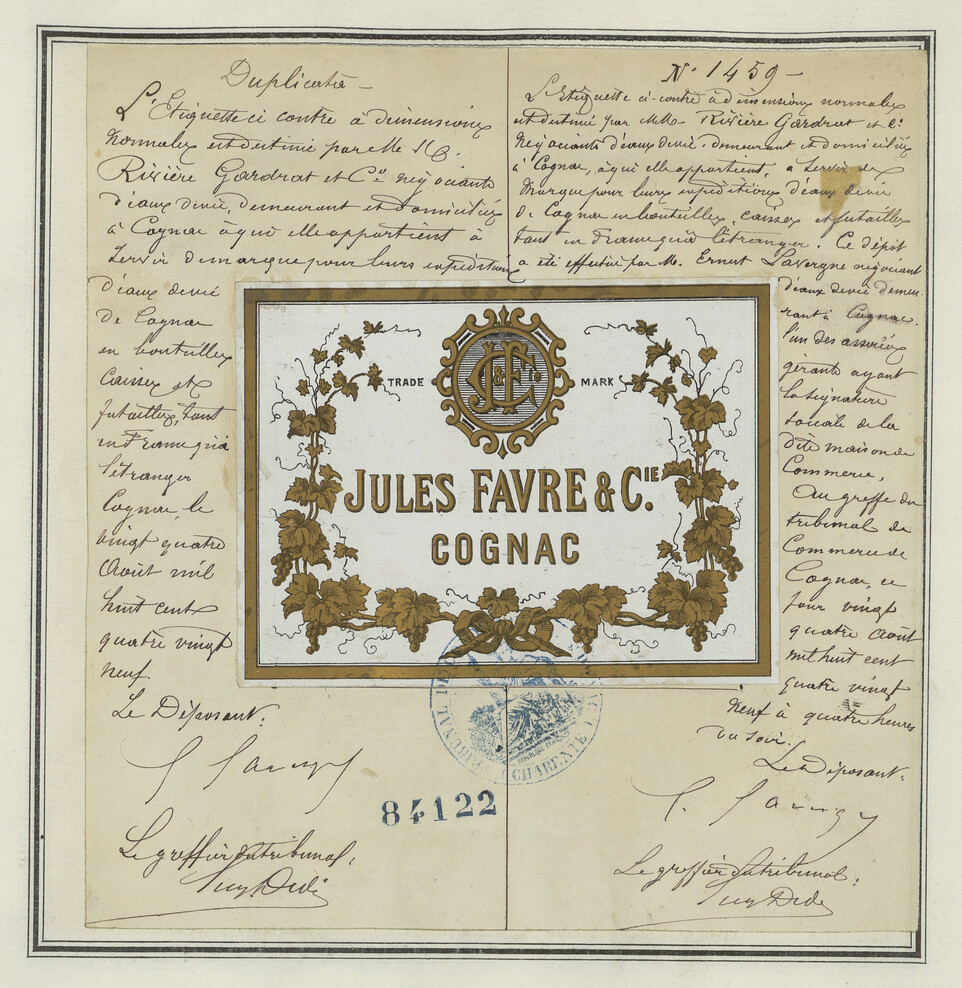 Duplicata
L'Etiquette ci contre à dimensions
Normales est destiné par MM
Rivière Gardrat et Cie négociants
d'eaux devie, demeurant et domiciliés
à Cognac à qui elle appartient à
servir de marque pour leurs expéditions
d'eaux devie
de Cognac
en bouteilles
Caisses et
futailles, tant
en France qu'à
l'étranger
Cognac, le
vingt quatre
Août mil
huit cent
quatre vingt
neuf.
Le Déposant:
Le greffier du tribunal:
No 1459
L'Etiquette ci-contre à dimensions normales
est destiné par MM. Rivière Gardrat et Cie
Négociants d'eaux devie, demeurant et domiciliés
à Cognac, à qui elle appartient, à servir de
Marque pour leurs expéditions d'eaux devie
de Cognac en bouteilles, caisses et futailles
tant en France qu'à l'étranger. Ce dépôt
a été effectué par M. Ernest Lavergne négociant
d'eaux devie demeu-
rant à Cognac.
l'un des associés
gérants ayant
la signature
sociale de la
dite maison de
Commerce,
Au greffe du
tribunal de
Commerce de
Cognac, ce
jour vingt
quatre août
mil huit cent
quatre vingt
Neuf à quatre heures
du soir.
Le Déposant:
Le greffier du tribunal:
TRADE MARK
J F & Co
JULES FAVRE & CIE
COGNAC
TRIBUNAL DE
CHARENTE
84122